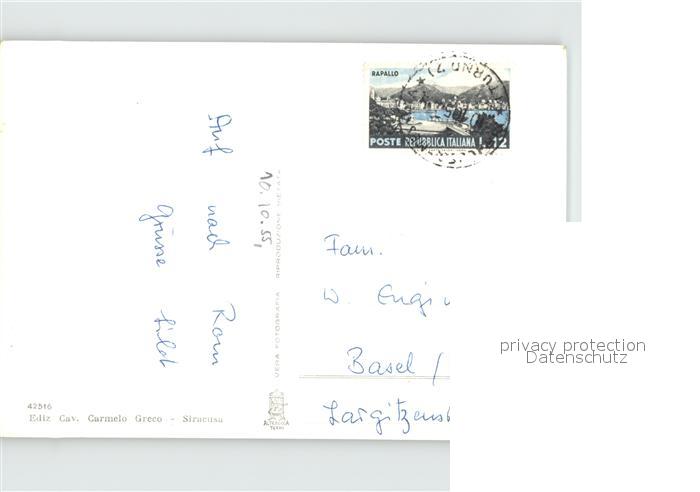 RAPALLO
POSTE REPUBBLICA ITALIANA L. 12
Auf nach Rom
Grüsse
10.10.55,
VERA FOTOGRAFIA RIPRODUZIONE VIETATA
Fam.
W.
Basel /
42516
Ediz Cav. Carmelo Greco - Siracusa
ALTEROCCA
TERNI
privacy protection
Datenschutz